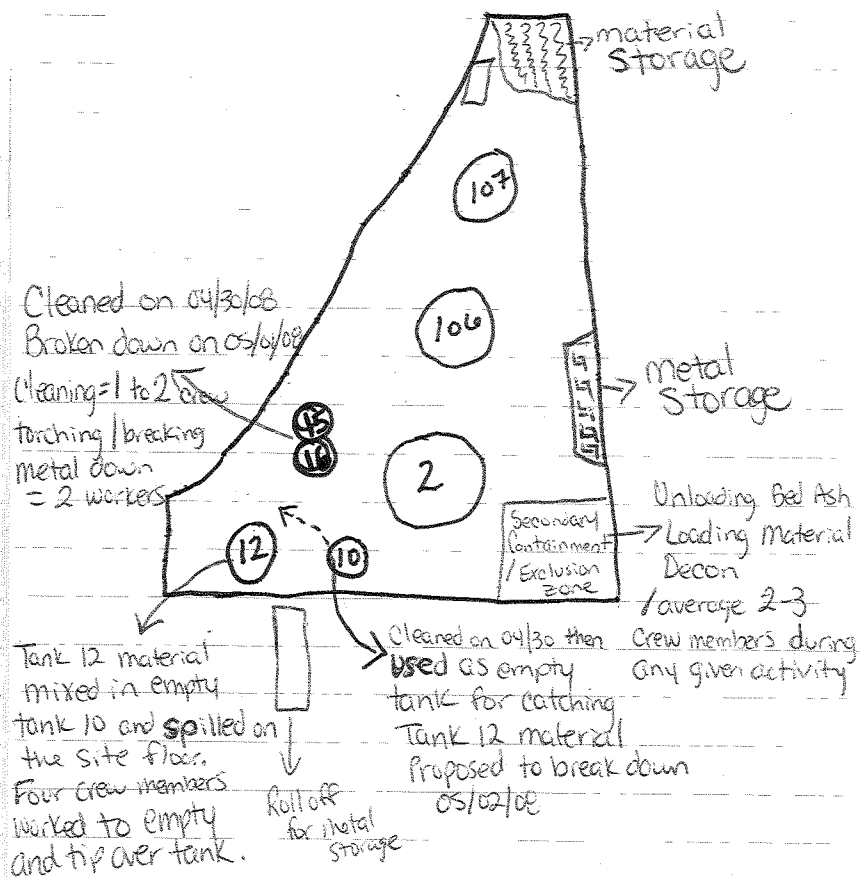 material
storage
107
106
Cleaned on 04/30/08
Broken down on 05/01/08
Cleaning = 1 to 2 crew
torching / breaking
metal down
= 2 workers
45
16
2
metal
storage
12
10
Secondary
Containment
/ Exclusion
zone
Unloading Bed Ash
Loading Material
Decon
/ average 2-3
crew members during
any given activity
Tank 12 material
mixed in empty
tank 10 and spilled on
the site floor.
Four crew members
worked to empty
and tip over tank.
Roll off
for metal
storage
Cleaned on 04/30 then
used as empty
tank for catching
Tank 12 material
Proposed to break down
05/02/08